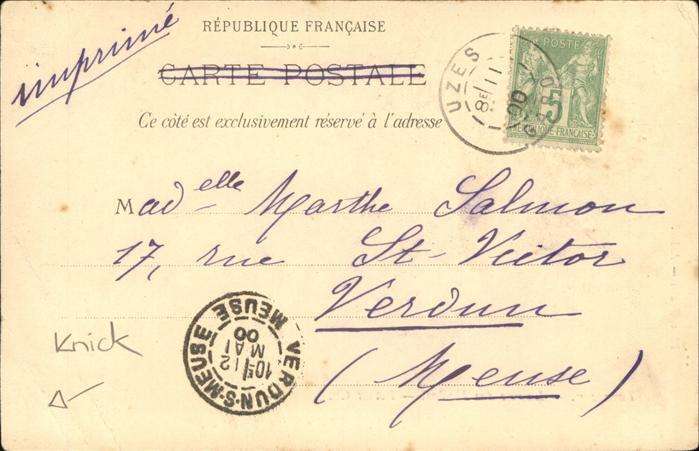 imprimé
RÉPUBLIQUE FRANÇAISE
CARTE POSTALE
Ce côté est exclusivement réservé à l'adresse
UZES
8E/11
00
POSTE
5
REPUBLIQUE FRANÇAISE
Madelle Marthe Salmon
17, rue St-Victor
Verdun
(Meuse)
VERDUN-S-MEUSE
MEUSE
10E/12
MAI
00
Knick